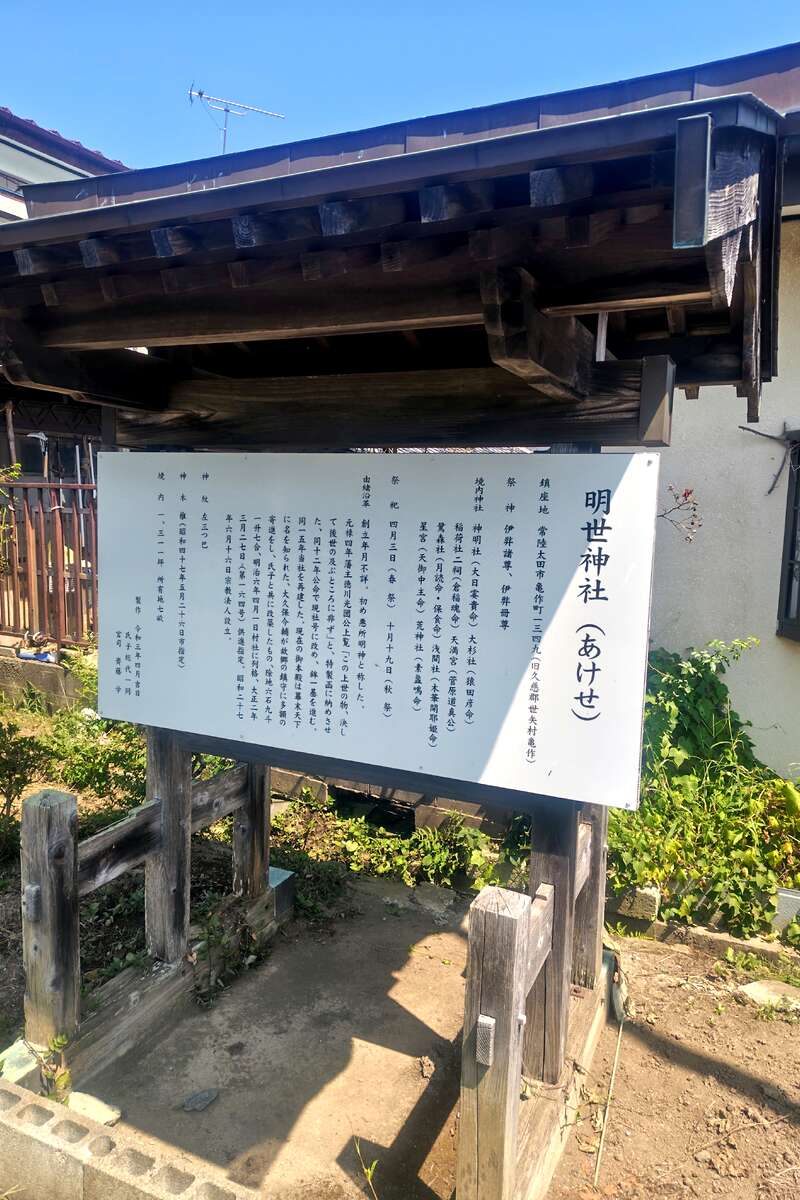 明世神社（あけせ）
鎮座地　常陸太田市亀作町一三四九（旧久慈郡世矢村亀作）
祭　神　伊弉諸尊、伊弉冊尊
境内神社　神明社（大日孁貴命）大杉社（猿田彦命）
稲荷社二祠（倉稲魂命）天満宮（菅原道真公）
鷲森社（月読命・保食命）浅間社（木華開耶姫命）
星宮（天御中主命）荒神社（素盞嗚命）
祭　祀　四月三日（春　祭）　十月十九日（秋　祭）
由緒沿革　創立年月不詳。初め悪所明神と称した。
元禄四年藩主徳川光圀公上覧「この上世の物、決し
て後世の及ぶところに非ず」と、特製函に納めさせ
た。同十二年公命で現社号に改め、鉾一基を進む。
同一五年当社を再建した。現在の御本殿は幕末天下
に名を知られた、大久保今輔が故郷の鎮守に多額の
寄進をし、氏子と共に改築したもの。除地六石九斗
一升七合、明治六年四月一日村社に列格、大正二年
三月二七日（第一六四号）供進指定。昭和二十七
年六月十六日宗教法人設立。
神　紋　左三つ巴
神　木　椎（昭和四十七年五月二十六日市指定）
境　内　一、三一一坪　所有地七畝
製作　令和三年四月吉日
氏子総代一同
宮司　齋藤　学